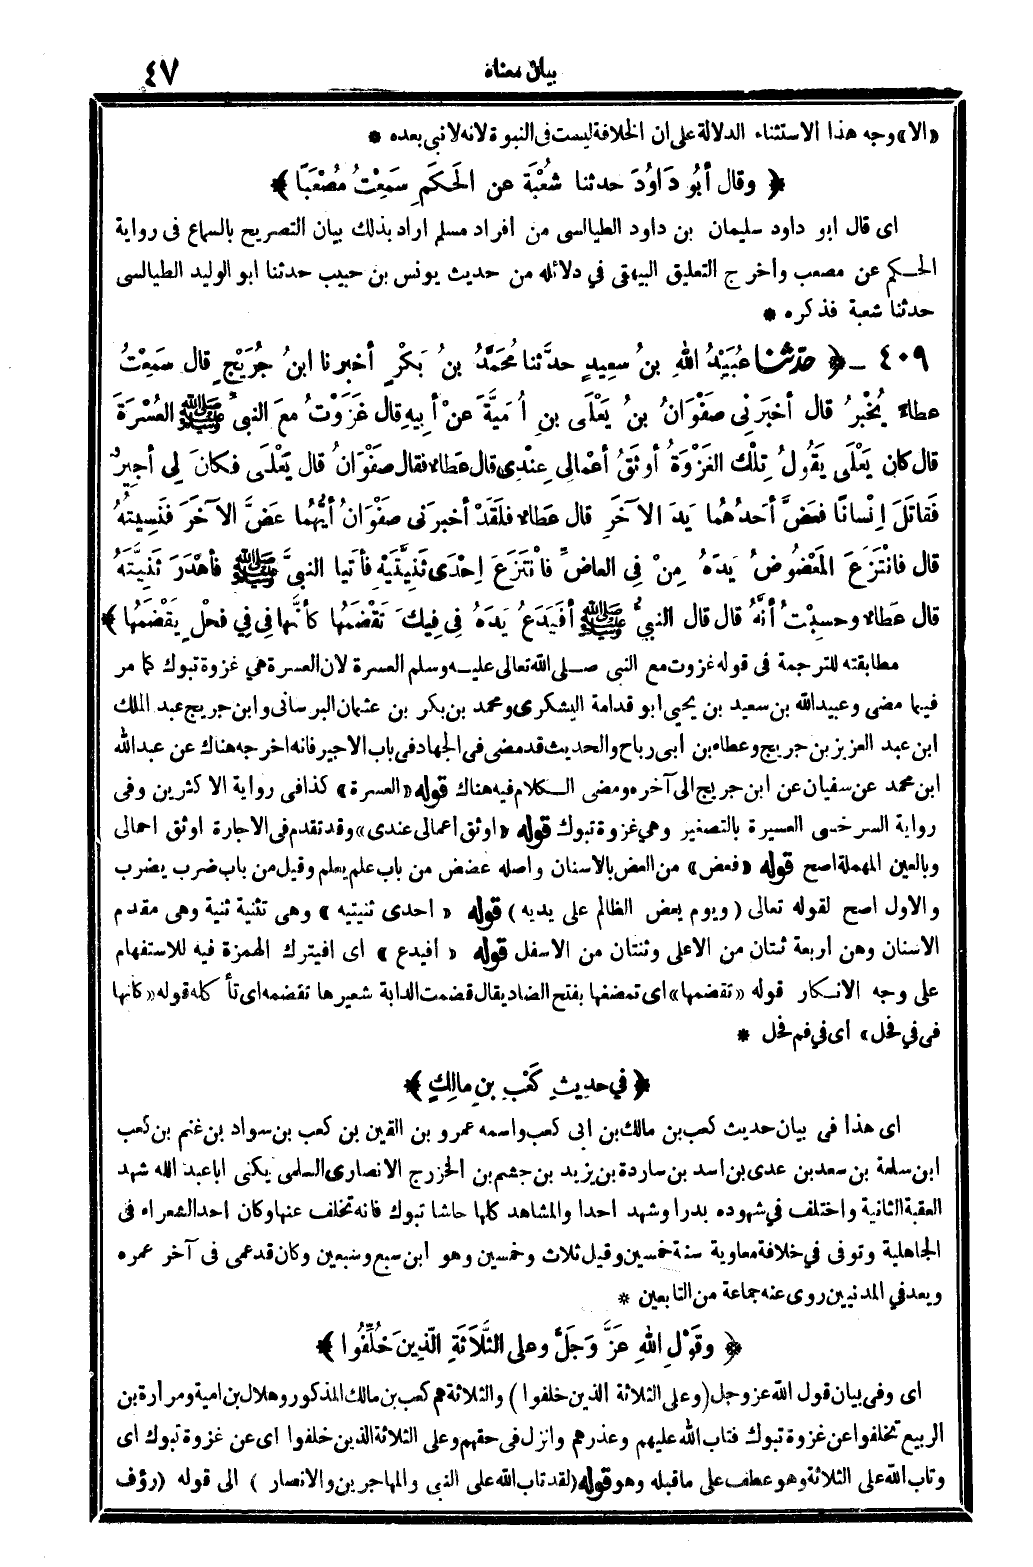 بيان معناه ٤٧
«الا» وجه هذا الاستثناء الدلالة على ان الخلافة ليست فى النبوة لانه لا نبى بعده *
﴿ وقال أبُو دَاوُدَ حدثنا شُعْبَةُ عن الحَكَمِ سَمِعْتُ مُصْعَبًا ﴾
اى قال ابو داود سليمان بن داود الطيالسى من افراد مسلم اراد بذلك بيان التصريح بالسماع فى رواية
الحكم عن مصعب واخرج التعليق البيهقى في دلائله من حديث يونس بن حبيب حدثنا ابو الوليد الطيالسى
حدثنا شعبة فذكره *
٤٠٩ ـ ﴿ حدّثنا عُبَيْدُ اللهِ بنُ سعِيدٍ حدَّثنا مُحَمَّدُ بنُ بَكْرٍ أخبرنا ابنُ جُرَيْجٍ قال سَمِعْتُ
عطاءً يُخْبرُ قال أخبَرَنى صَفْوَانُ بنُ يَعْلَى بنِ أُمَيَّةَ عنْ أبِيهِ قال غَزَوْتُ معَ النبيِّ ﷺ العُسْرَةَ
قال كان يَعْلَى يَقُولُ تِلْكَ الغَزْوَةُ أوْثَقُ أعْمالى عِنْدِى قال عَطاءٌ فقال صفْوَانُ قال يَعْلَى فكانَ لِي أجِيرٌ
فَقاتَلَ إنْسانًا فعَضَّ أحَدُهُما يَدَ الآخَرِ قال عَطاءٌ فلَقَدْ أخبرَنى صفْوَانُ أيُّهُما عَضَّ الآخَرَ فَنَسِيتُهُ
قال فانْتَزَعَ المَعْضُوضُ يَدَهُ مِنْ فى العاضِّ فانْتَزَعَ إحْدَى ثَنِيَّتَيْهِ فأتَيا النبيَّ ﷺ فأهْدَرَ ثَنِيَّتَهُ
قال عَطاءٌ وحسِبْتُ أنَّهُ قال قال النبيُّ ﷺ أفَيَدَعُ يَدَهُ فى فِيكَ تَقْضَمُها كأنَّها فِى فِي فَحْلٍ يَقْضَمُها ﴾
مطابقته للترجمة فى قوله غزوت مع النبى صلى الله تعالى عليه وسلم العسرة لان العسرة هي غزوة تبوك كما مر
فيما مضى وعبيد الله بن سعيد بن يحيى ابو قدامة اليشكرى ومحمد بن بكر بن عثمان البرسانى وابن جريج عبد الملك
ابن عبد العزيز بن جريج وعطاء بن ابى رباح والحديث قد مضى فى الجهاد فى باب الاجير فانه اخرجه هناك عن عبد الله
ابن محمد عن سفيان عن ابن جريج الى آخره ومضى الكلام فيه هناك قوله «العسرة» كذا فى رواية الاكثرين وفى
رواية السرخسى العسيرة بالتصغير وهي غزوة تبوك قوله «اوثق اعمالى عندى» وقد تقدم فى الاجارة اوثق احمالى
وبالعين المهملة اصح قوله «فعض» من العض بالاسنان واصله عضض من باب علم يعلم وقيل من باب ضرب يضرب
والاول اصح لقوله تعالى (ويوم يعض الظالم على يديه) قوله «احدى ثنيتيه» وهى تثنية ثنية وهى مقدم
الاسنان وهن اربعة ثنتان من الاعلى وثنتان من الاسفل قوله «أفيدع» اى افيترك الهمزة فيه للاستفهام
على وجه الانكار قوله «تقضمها» اى تمضغها بفتح الضاد يقال قضمت الدابة شعيرها تقضمه اى تأكله قوله «كانها
فى في فحل» أى في فم فحل *
﴿ في حديثِ كَعْبِ بنِ مالِكٍ ﴾
اى هذا فى بيان حديث كعب بن مالك بن ابى كعب واسمه عمرو بن القين بن كعب بن سواد بن غنم بن كعب
ابن سلمة بن سعد بن عدى بن اسد بن ساردة بن يزيد بن جشم بن الخزرج الانصارى السلمى يكنى ابا عبد الله شهد
العقبة الثانية واختلف في شهوده بدرا وشهد احدا والمشاهد كلها حاشا تبوك فانه تخلف عنها وكان احد الشعراء فى
الجاهلية وتوفى في خلافة معاوية سنة خمسين وقيل ثلاث وخمسين وهو ابن سبع وسبعين وكان قد عمى فى آخر عمره
ويعد في المدنيين روى عنه جماعة من التابعين *
﴿ وقَوْلِ اللهِ عزَّ وَجَلَّ وعلى الثَّلاَثَةِ الَّذِينَ خُلِّفُوا ﴾
اى وفى بيان قول الله عز وجل (وعلى الثلاثة الذين خلفوا) والثلاثة هم كعب بن مالك المذكور وهلال بن امية ومرارة بن
الربيع تخلفوا عن غزوة تبوك فتاب الله عليهم وعذرهم وانزل فى حقهم وعلى الثلاثة الذين خلفوا اى عن غزوة تبوك اى
وتاب الله على الثلاثة وهو عطف على ما قبله وهو قوله (لقد تاب الله على النبى والمهاجرين والانصار) الى قوله (رؤف